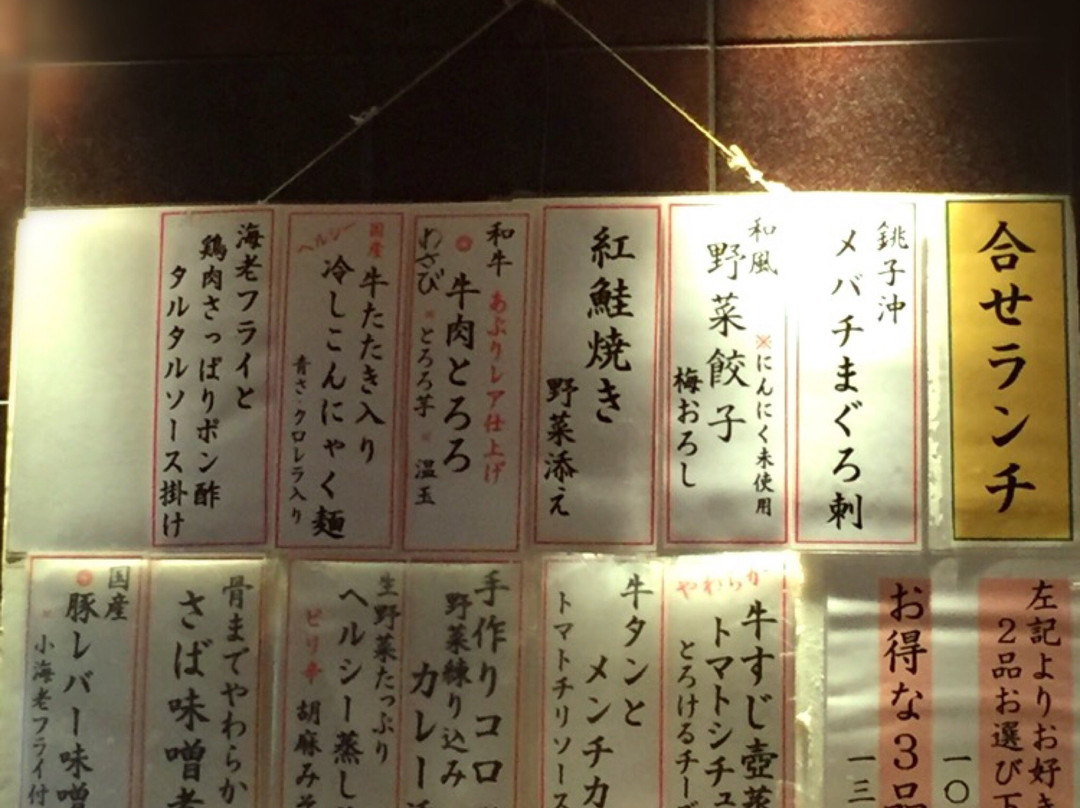 合せランチ
銚子沖
メバチまぐろ刺
和風
※にんにく未使用
野菜餃子
梅おろし
紅鮭焼き
野菜添え
和牛
あぶりレア仕上げ
牛肉とろろ
わさび
とろろ芋
温玉
国産
ヘルシー
牛たたき入り
冷しこんにゃく麺
青さクロレラ入り
海老フライと
鶏肉さっぱりポン酢
タルタルソース掛け
左記よりお好
2品お選び
一〇
お得な3品
一三
やわらか
牛すじ壺蒸
トマトシチュ
とろけるチーズ
牛タンと
メンチカ
トマトチリソース
手作りコロ
野菜練り込み
カレー
生野菜たっぷり
ヘルシー蒸し
ピリ辛
胡麻みそ
骨までやわらか
さば味噌煮
国産
豚レバー味噌
小海老フライ付